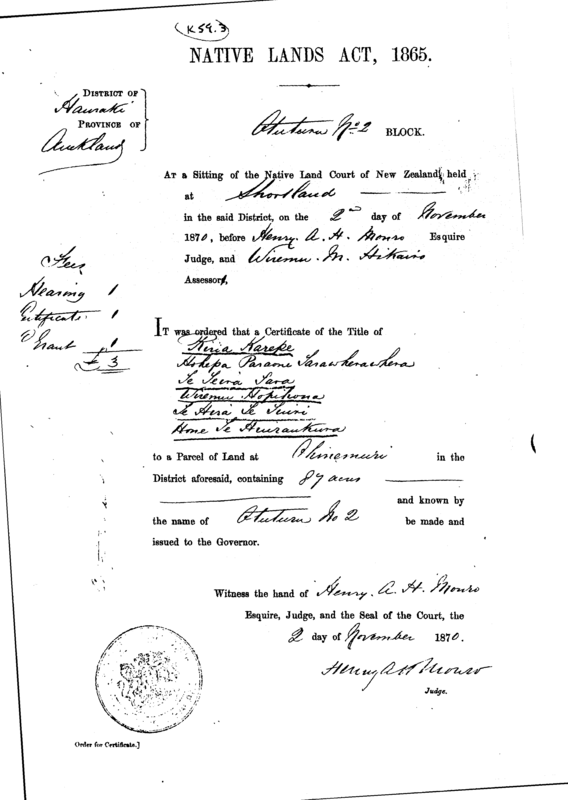 K 59.3
NATIVE LANDS ACT, 1865.
DISTRICT OF
Hauraki
PROVINCE OF
Auckland
Otuturu No. 2 BLOCK.
AT a Sitting of the Native Land Court of New Zealand, held
at Shortland
in the said District, on the 2nd day of November
1870, before Henry A. H. Monro Esquire
Judge, and Wiremu M. Hikairo
Assessor,
Fees
Hearing 1
Certificate 1
Grant 1
£ 3
IT was ordered that a Certificate of the Title of
Kiria Karepe
Hohepa Paraone Tarawherawhera
Te Teira Tara
Wiremu Hopihona
Te Hira Te Tuiri
Hone Te Huiraukura
to a Parcel of Land at Ohinemuri in the
District aforesaid, containing 87 acres
and known by
the name of Otuturu No 2 be made and
issued to the Governor.
Witness the hand of Henry. A. H. Monro
Esquire, Judge, and the Seal of the Court, the
2 day of November 1870.
Henry A H Monro
Judge.
Order for Certificate.]